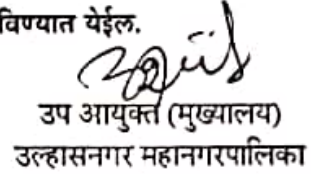 विण्यात येईल.
उप आयुक्त (मुख्यालय)
उल्हासनगर महानगरपालिका